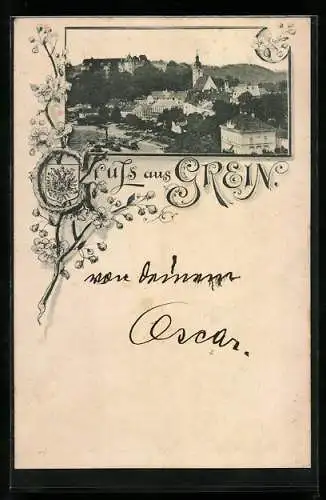 Gruss aus GREIN.
von deinem
Oscar.